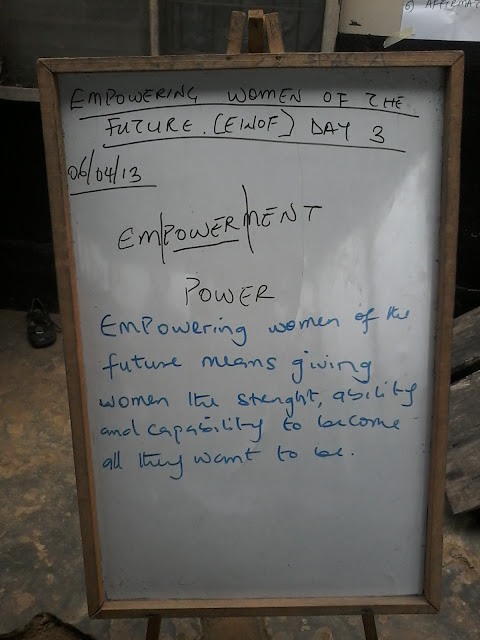 6) AFFIRMAT
EMPOWERING WOMEN OF THE
FUTURE. (EWOF) DAY 3
06/04/13
EM/POWER/MENT
POWER
EmPowering women of the
future means giving
women the stenght, ability
and capability to become
all they want to be.